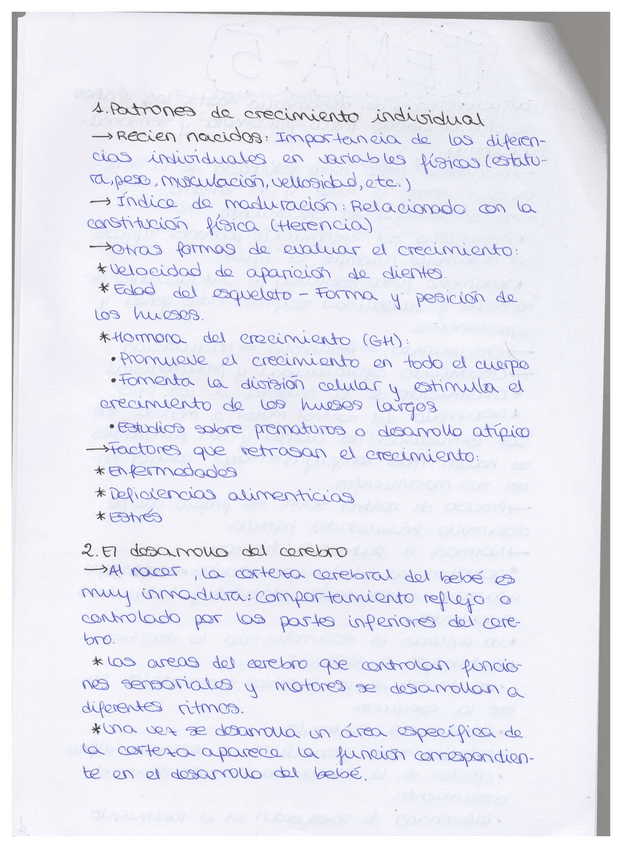 1. Patrones de crecimiento individual
→ Recien nacidos: Importancia de las diferen-
cias individuales en variables físicas (estatu-
ra, peso, musculación, vellosidad, etc.)
→ Índice de maduración: Relacionado con la
constitución física (Herencia)
→ Otras formas de evaluar el crecimiento:
* Velocidad de aparicion de dientes
* Edad del esqueleto – Forma y posición de
los huesos.
* Hormona del crecimiento (GH):
• Promueve el crecimiento en todo el cuerpo
• Fomenta la división celular y estimula el
crecimiento de los huesos largos
• Estudios sobre prematuros o desarrollo atípico
→ Factores que retrasan el crecimiento:
* Enfermedades
* Deficiencias alimenticias
* Estrés
2. El desarrollo del cerebro
→ Al nacer, la corteza cerebral del bebé es
muy inmadura: comportamiento reflejo o
controlado por las partes inferiores del cere-
bro.
* Las areas del cerebro que controlan funcio-
nes sensoriales y motores se desarrollan a
diferentes ritmos.
* Una vez se desarrolla un área específica de
la corteza aparece la función correspondien-
te en el desarrollo del bebé.